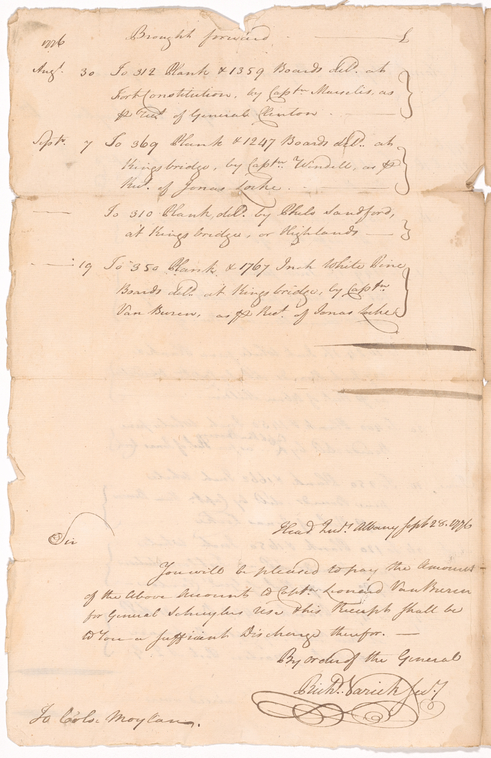 1776 Brought forward £
Augt. 30 To 312 Plank & 1359 Boards deld. at
Fort Constitution, by Captn. Marselis, as
pr Rect. of General Clinton
Septr. 7 To 369 Plank & 1247 Boards deld. at
Kingsbridge, by Captn. Windell, as pr
Rect. of Jonas Locke
To 310 Plank deld. by Chels Sandford,
at Kingsbridge, or Highlands
19 To 350 Plank & 1767 Inch White Pine
Boards deld. at Kingsbridge, by Captn.
Van Buren, as pr Rect. of Jonas Locke
Head Qurs. Albany Sept 28. 1776
Sir
You will be pleased to pay the Amount
of the Above Account to Captn. Leonard Van Buren
for General Schuylers Use & his Receipt shall be
to You a sufficient Discharge therefor.
By order of the General
Richd. Varick Secy
To Colo. Moylan.